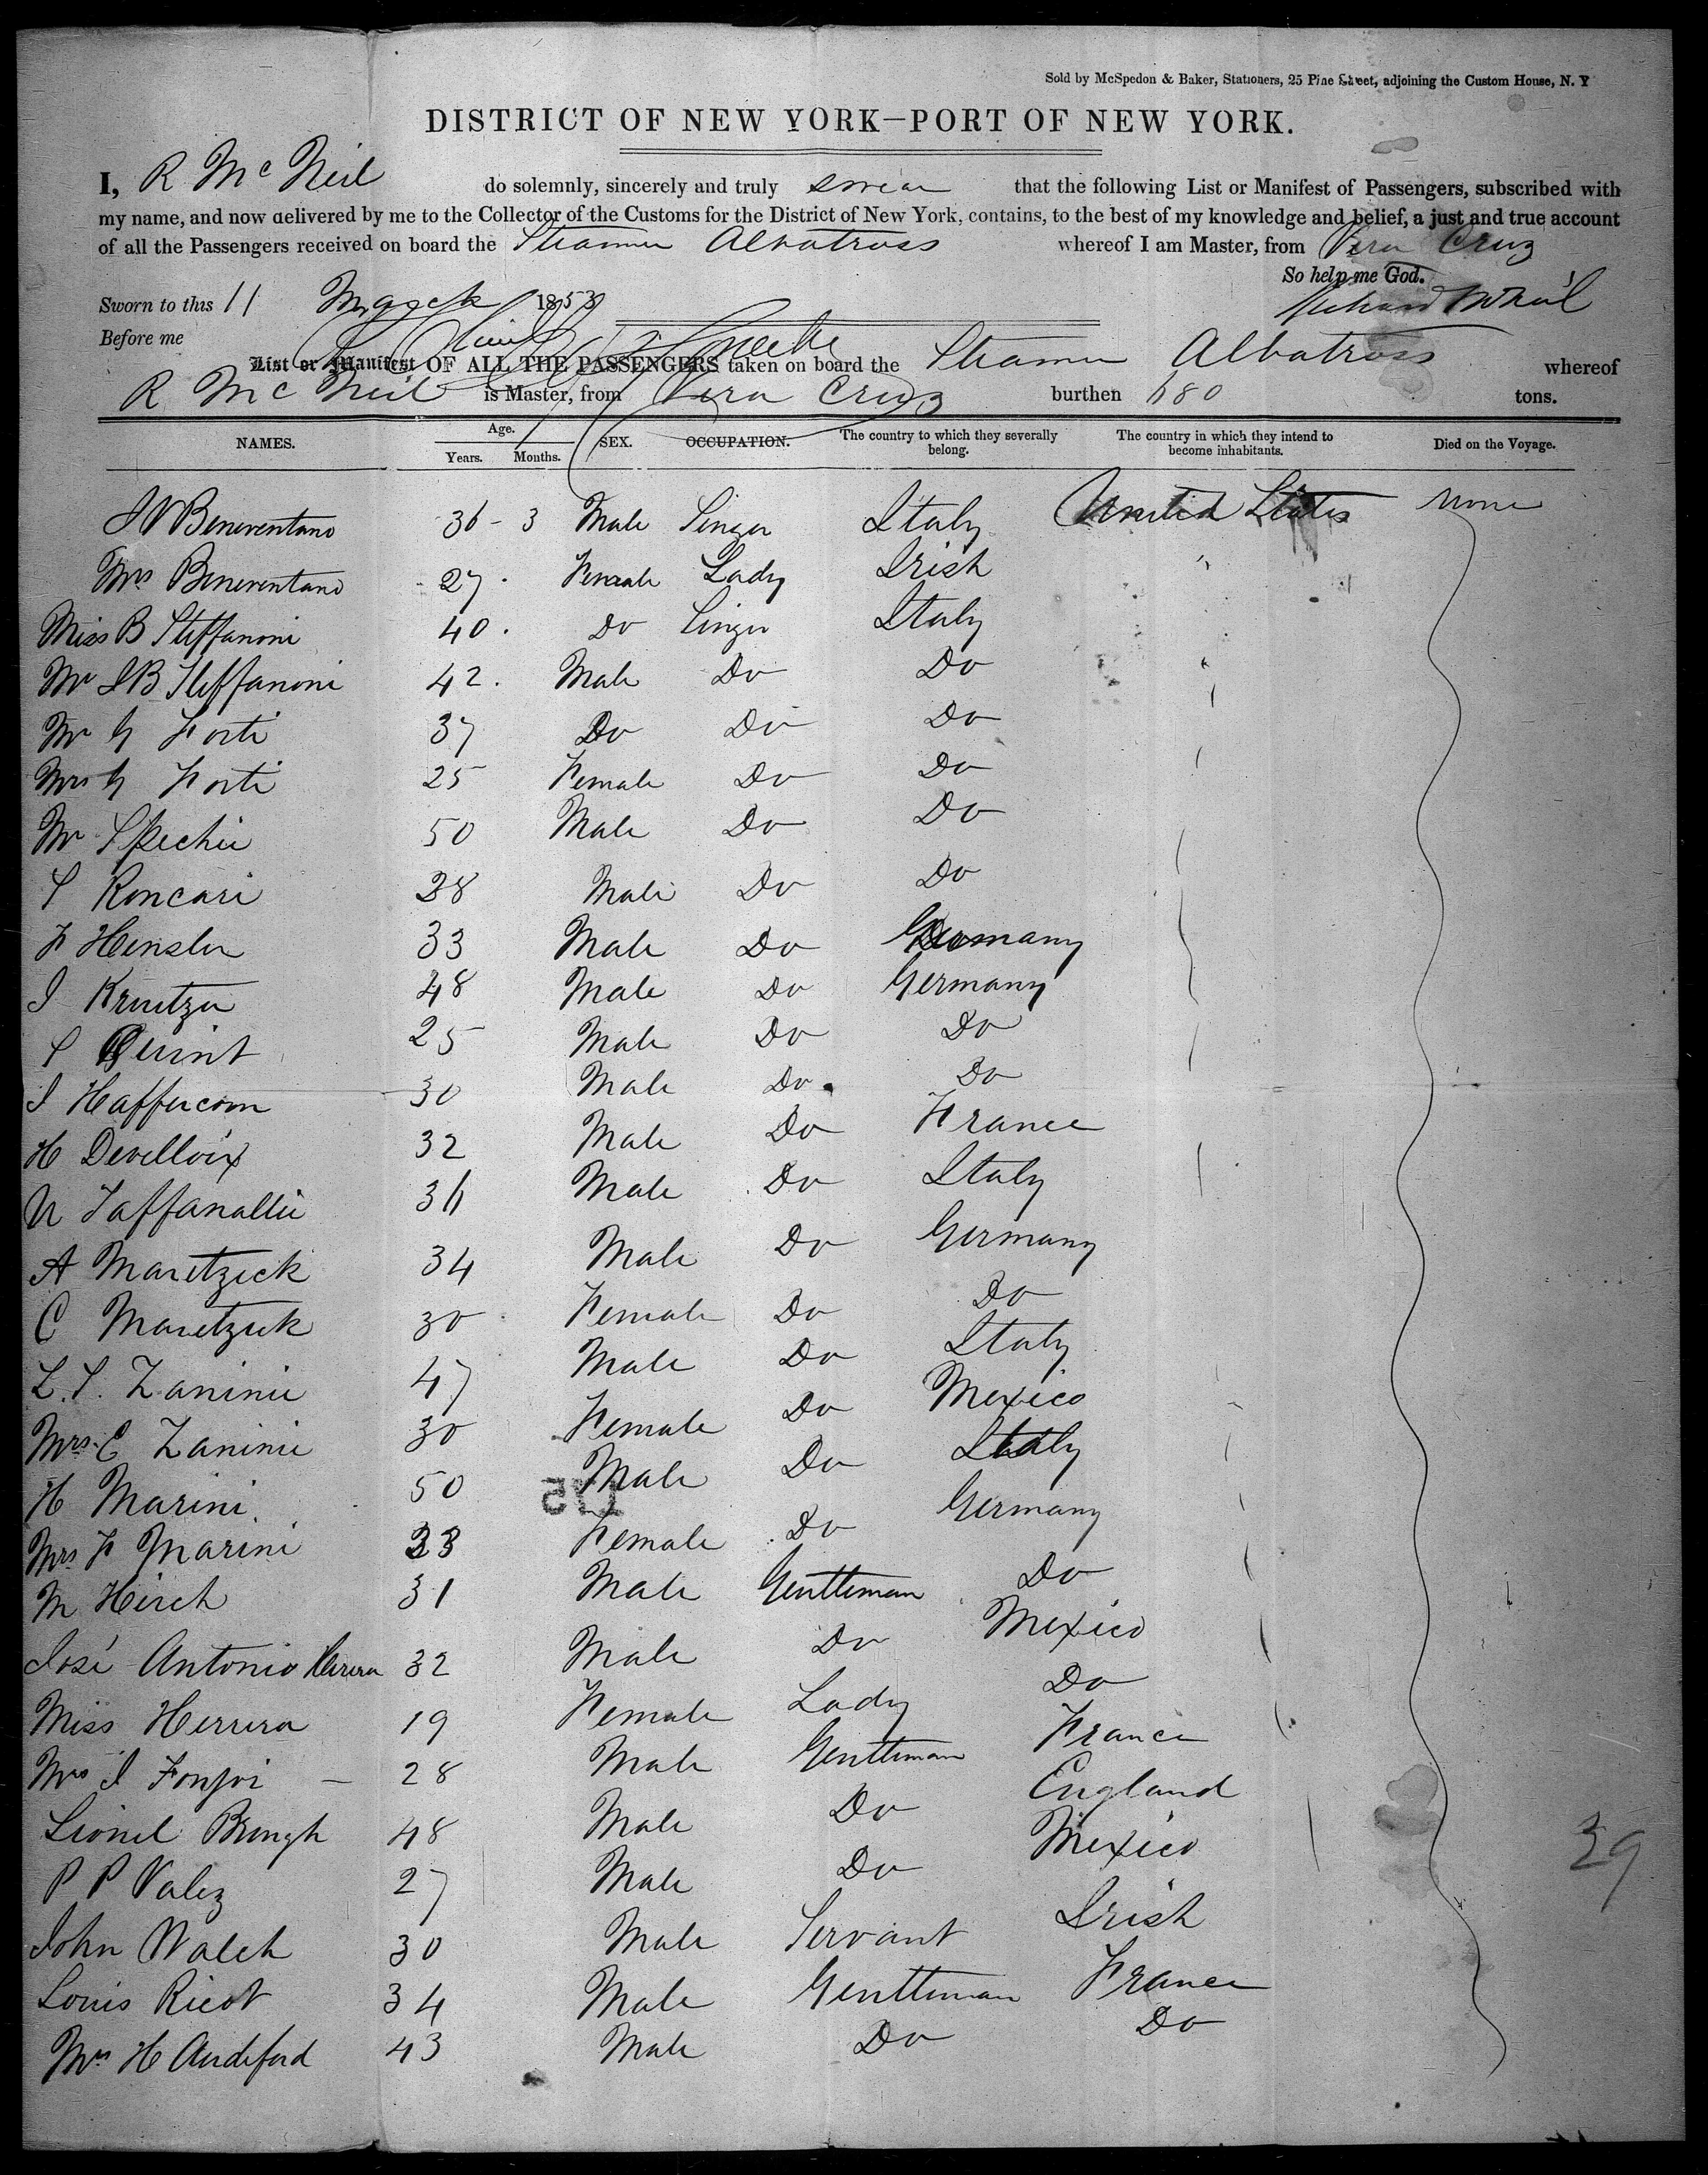 Sold by McSpedon & Baker, Stationers, 25 Pine Street, adjoining the Custom House, N. Y
DISTRICT OF NEW YORK—PORT OF NEW YORK.
I, R McNeil do solemnly, sincerely and truly swear that the following List or Manifest of Passengers, subscribed with
my name, and now delivered by me to the Collector of the Customs for the District of New York, contains, to the best of my knowledge and belief, a just and true account
of all the Passengers received on board the Steamer Albatross whereof I am Master, from Vera Cruz
So help me God.
Sworn to this 11 March 1853 Richard McNeil
Before me
List or Manifest OF ALL THE PASSENGERS taken on board the Steamer Albatross whereof
R McNeil is Master, from Vera Cruz burthen 680 tons.
NAMES. Age. Years. Months. SEX. OCCUPATION. The country to which they severally belong. The country in which they intend to become inhabitants. Died on the Voyage.
Beneventano 36 - 3 Male Singer Italy United States None
Mrs Beneventano 27 Female Lady Irish "
Miss B Steffanoni 40 Do Singer Italy
Mr J B Steffanoni 42 Male Do Do
Mr G Forti 37 Do Do Do
Mrs G Forti 25 Female Do Do
Mr Spechii 50 Male Do Do
S Roncari 38 Male Do Do
F Hensler 33 Male Do Germany
J Kreutzer 48 Male Do Germany
S Quint 25 Male Do Do
J Haffercorn 30 Male Do Do
H Develloix 32 Male Do France
N Taffanallii 36 Male Do Italy
A Maretzeck 34 Male Do Germany
C Maretzek 30 Female Do Do
L. S. Zaninii 47 Male Do Italy
Mrs. C Zaninii 30 Female Do Mexico
H Marini 50 Male Do Italy
Mrs F Marini 33 Female Do Germany
M Hirch 31 Male Gentleman Do
José Antonio Herrera 32 Male Do Mexico
Miss Herrera 19 Female Lady Do
28 Male Gentleman France
Lionel Brough 48 Male Do England
P P Valez 27 Male Do Mexico
John Walch 30 Male Servant Irish
Louis Ricot 34 Male Gentleman France
H Audiford 43 Male Do Do
39